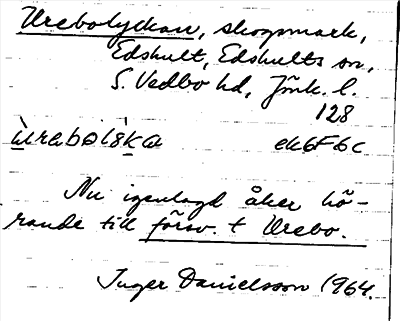 Urebolyckan, skogsmark,
Edshult, Edshults sn,
S. Vedbo hd, Jönk. l.
128
ek6F6c
Nu igenlagd åker hö-
rande till försv. t Urebo.
Inger Danielsson 1964.